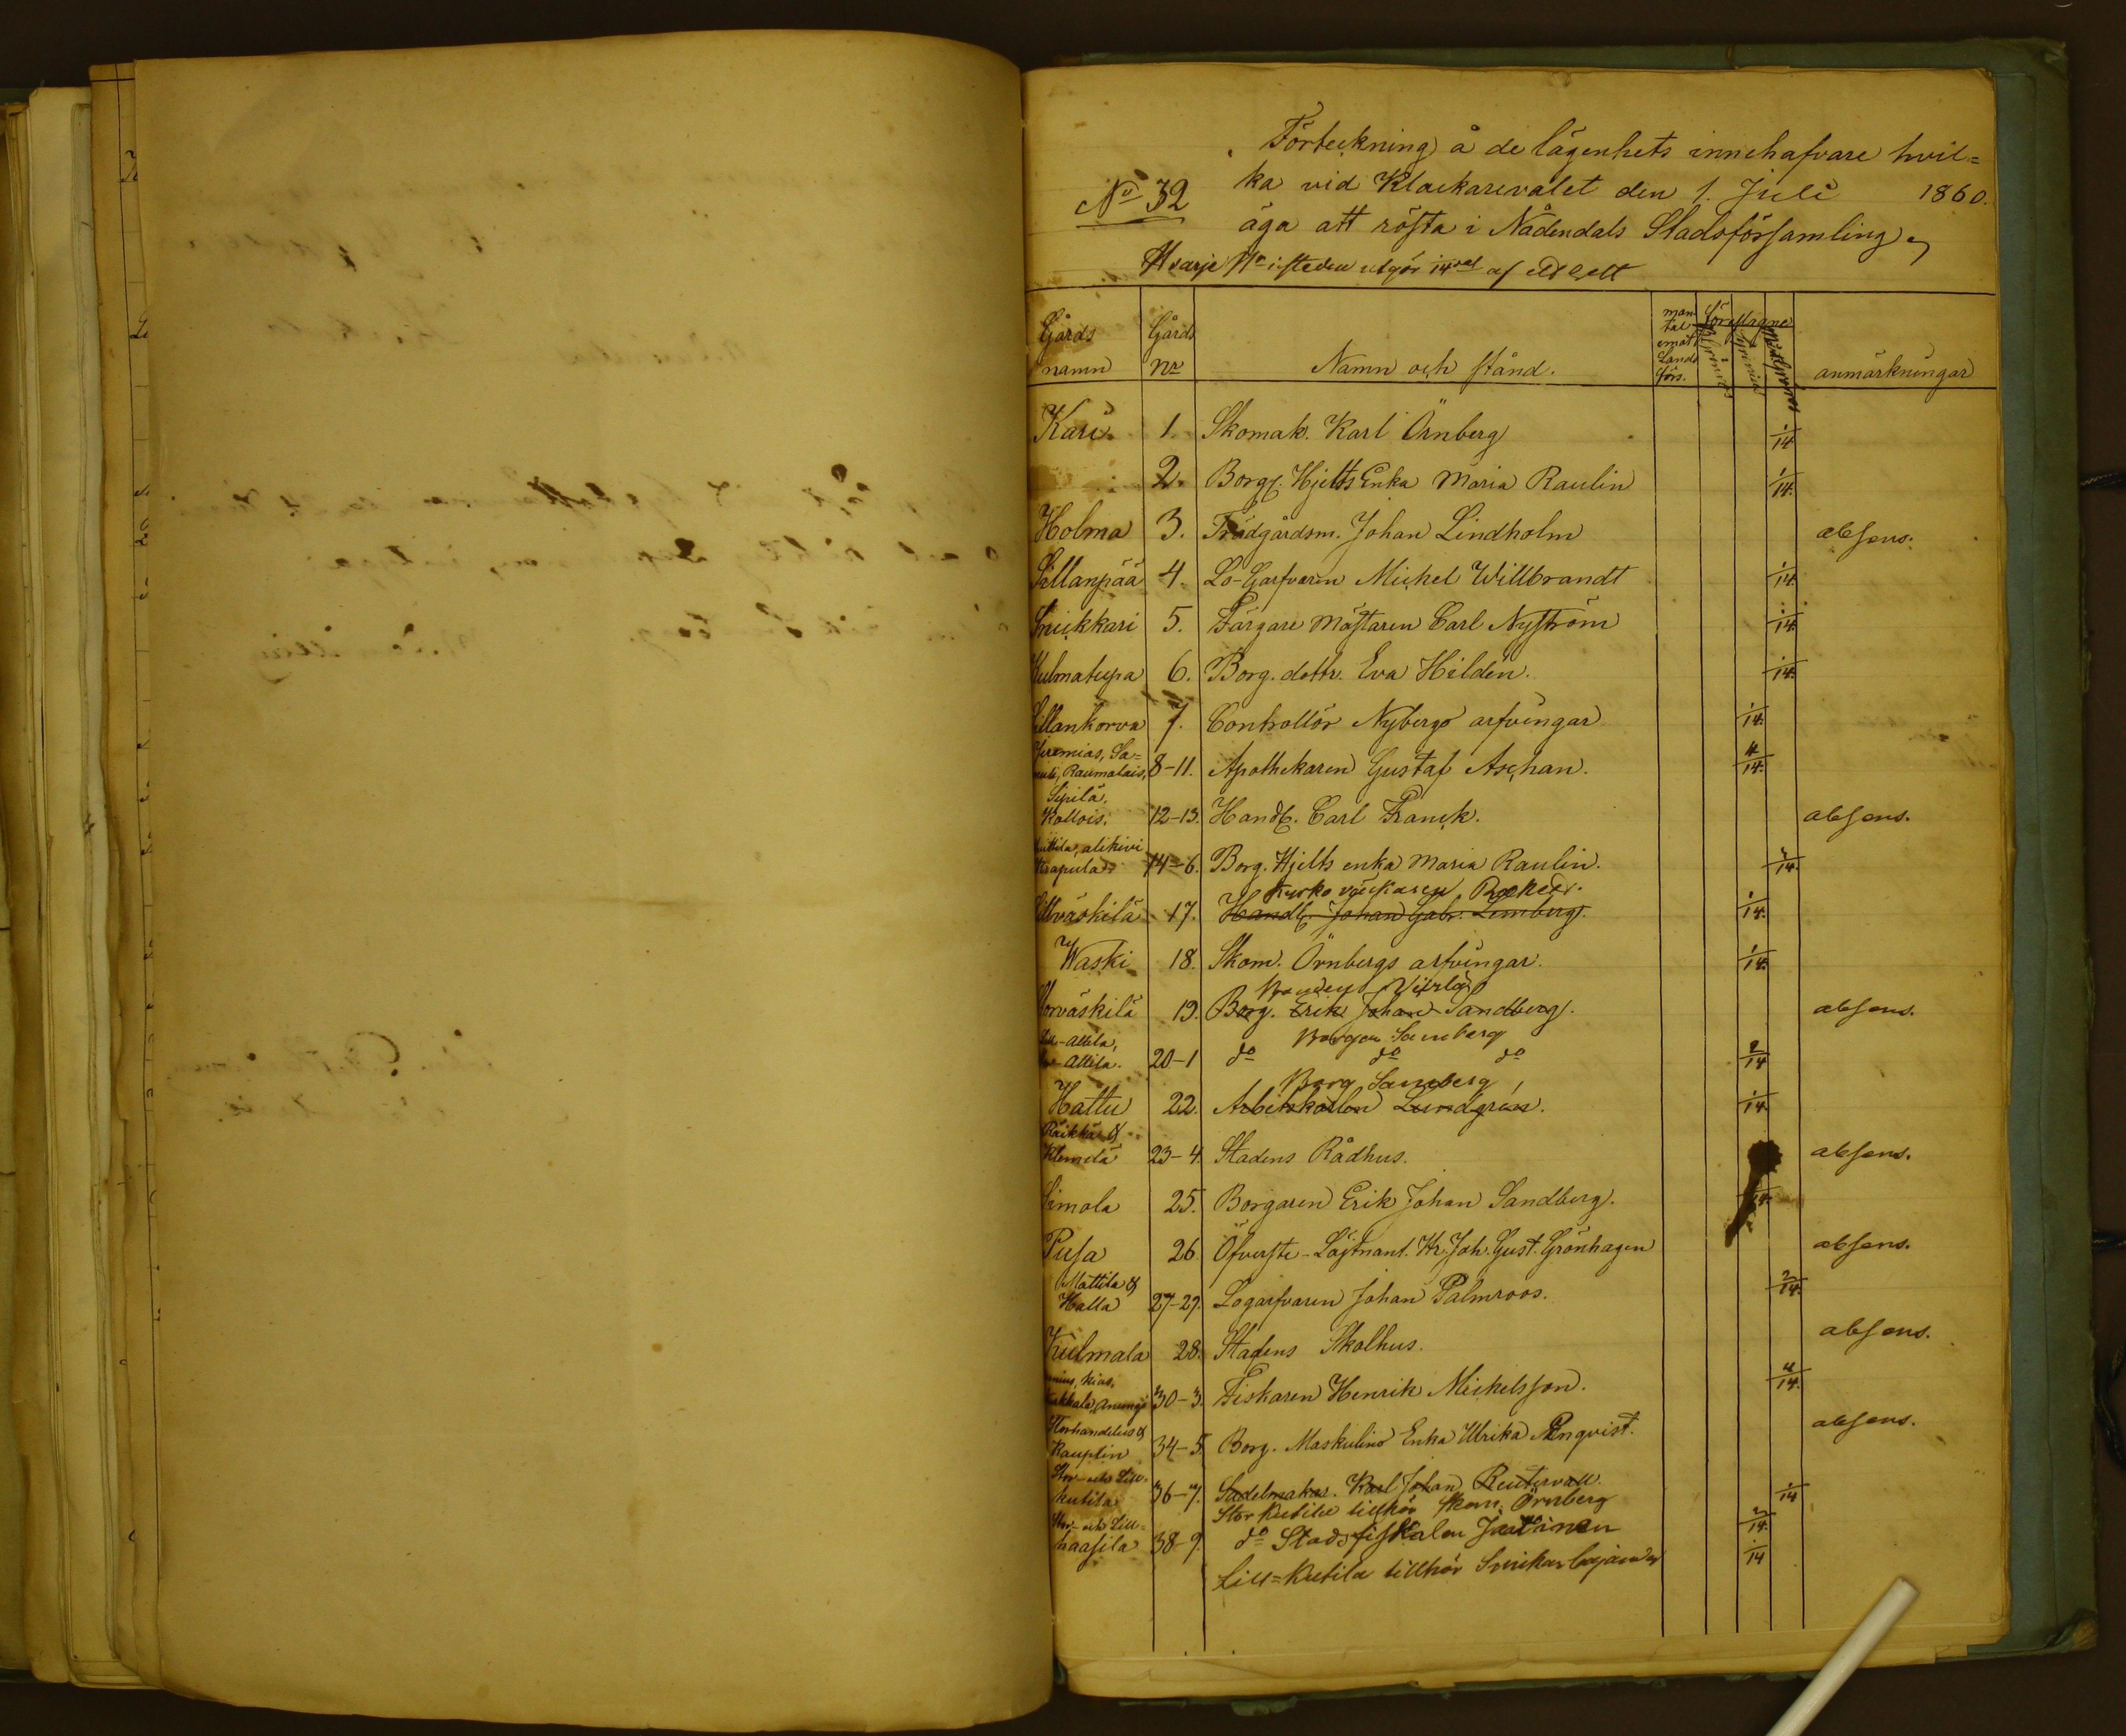 Förteckning å de lägenhets innehafvare hvil=
No 32
ka vid Klockarevalet den 1. Juli 1860.
äga att rösta i Nådendals Stadsförsamling
Hvarje No i staden utgör 1/14 del af ett helt
Gårds namn Gårds nr Namn och stånd. mantal Lands förs. föreslagne anmärkningar
Kari 1. Skomak. Karl Örnberg 1/14
2. Borg. Hjelts Enka Maria Raulin 1/14.
Holma 3. Trädgårdsm. Johan Lindholm absens.
Sillanpää 4. Lo-Garfvaren Michel Willbrandt 1/14.
Snickkari 5. Färgare mästaren Carl Nyström 1/14.
Kulmatupa 6. Borg. dottr. Eva Hildén. 1/14.
Sillankorva 7. Controllör Nybergs arfvingar 1/14.
Jeremias, Sa=
Raumalais, 8-11. Apothekaren Gustaf Aschan. 4/14.
Sipilä,
Kollois. 12-13. Handl. Carl Franck. absens.
alikivi
Krapula 14-6. Borg. Hjelts enka Maria Raulin. 1/14.
Kyrko väckaren
Lillväskilä 17. Handl. Johan Gabr. Lemberg. 1/14.
Waski 18. Skom. Örnbergs arfvingar. 1/14.
Storväskilä 19. Borg. Erik Johan Sandberg. absens.
Lill-Attila, Borgen Samberg
Attila. 20-1 do do do 2/14
Borg Samberg
Hattu 22. Arbetskarlen Lundgrén. 1/14.
Räikkä &
Klemelä 23-4 Stadens Rådhus. absens.
Simola 25. Borgaren Erik Johan Sandberg.
Pusa 26 Öfverste-Löjtnant. Hr. Joh. Gust. Grönhagen absens.
Mattila &
Halla 27-29. Logarfvaren Johan Palmroos. 2/14.
Kulmala 28. Stadens Skolhus. absens.
30-3. Fiskaren Henrik Michelsson. 4/14.
Storhandelus &
Kauppin 34-5. Borg. Maskulins Enka Ulrika Enqvist. absens.
Stor- och Lill-
kutila 36-7. Sadelmakar. Karl Johan Reuterwall. 1/14
Stor kutila tillhör Skom. Örnberg
Stor- och Lill=
haasila 38-9. do Stadsfiskalen Jaatinen 2/14.
Lill=Kutila tillhör 1/14